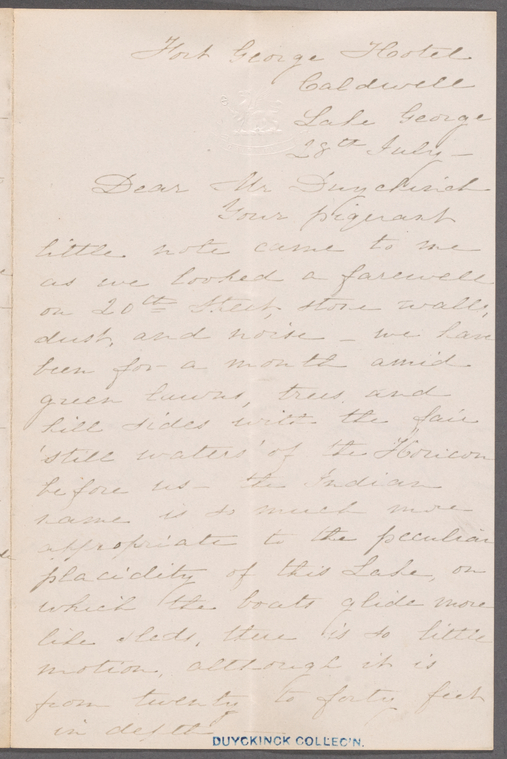 Fort George Hotel
Caldwell
Lake George
28th July —
Dear Mr Duyckinck
Your piquant
little note came to me
as we looked a farewell
on 20th Street, stone walls,
dust, and noise — we have
been for a month amid
green lawns, trees, and
hill sides with the fair
'still waters' of the Horicon
before us — the Indian
name is so much more
appropriate to the peculiar
placidity of this Lake, on
which the boats glide more
like sleds, there is so little
motion, although it is
from twenty to forty feet
in depth
DUYCKINCK COLLEC'N.